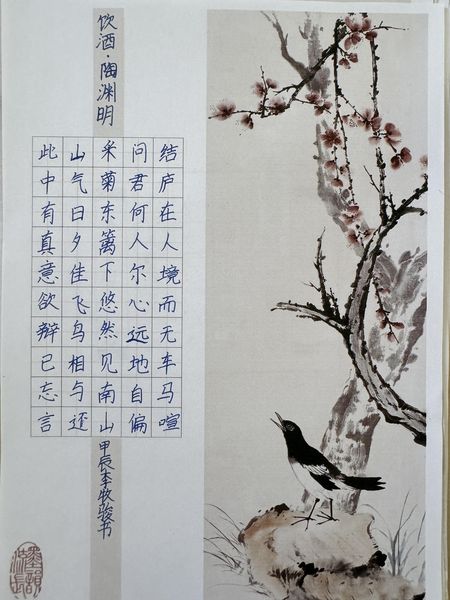 饮酒·陶渊明
结庐在人境而无车马喧
问君何人尔心远地自偏
采菊东篱下悠然见南山
山气日夕佳飞鸟相与还
此中有真意欲辩已忘言
甲辰李牧骏书